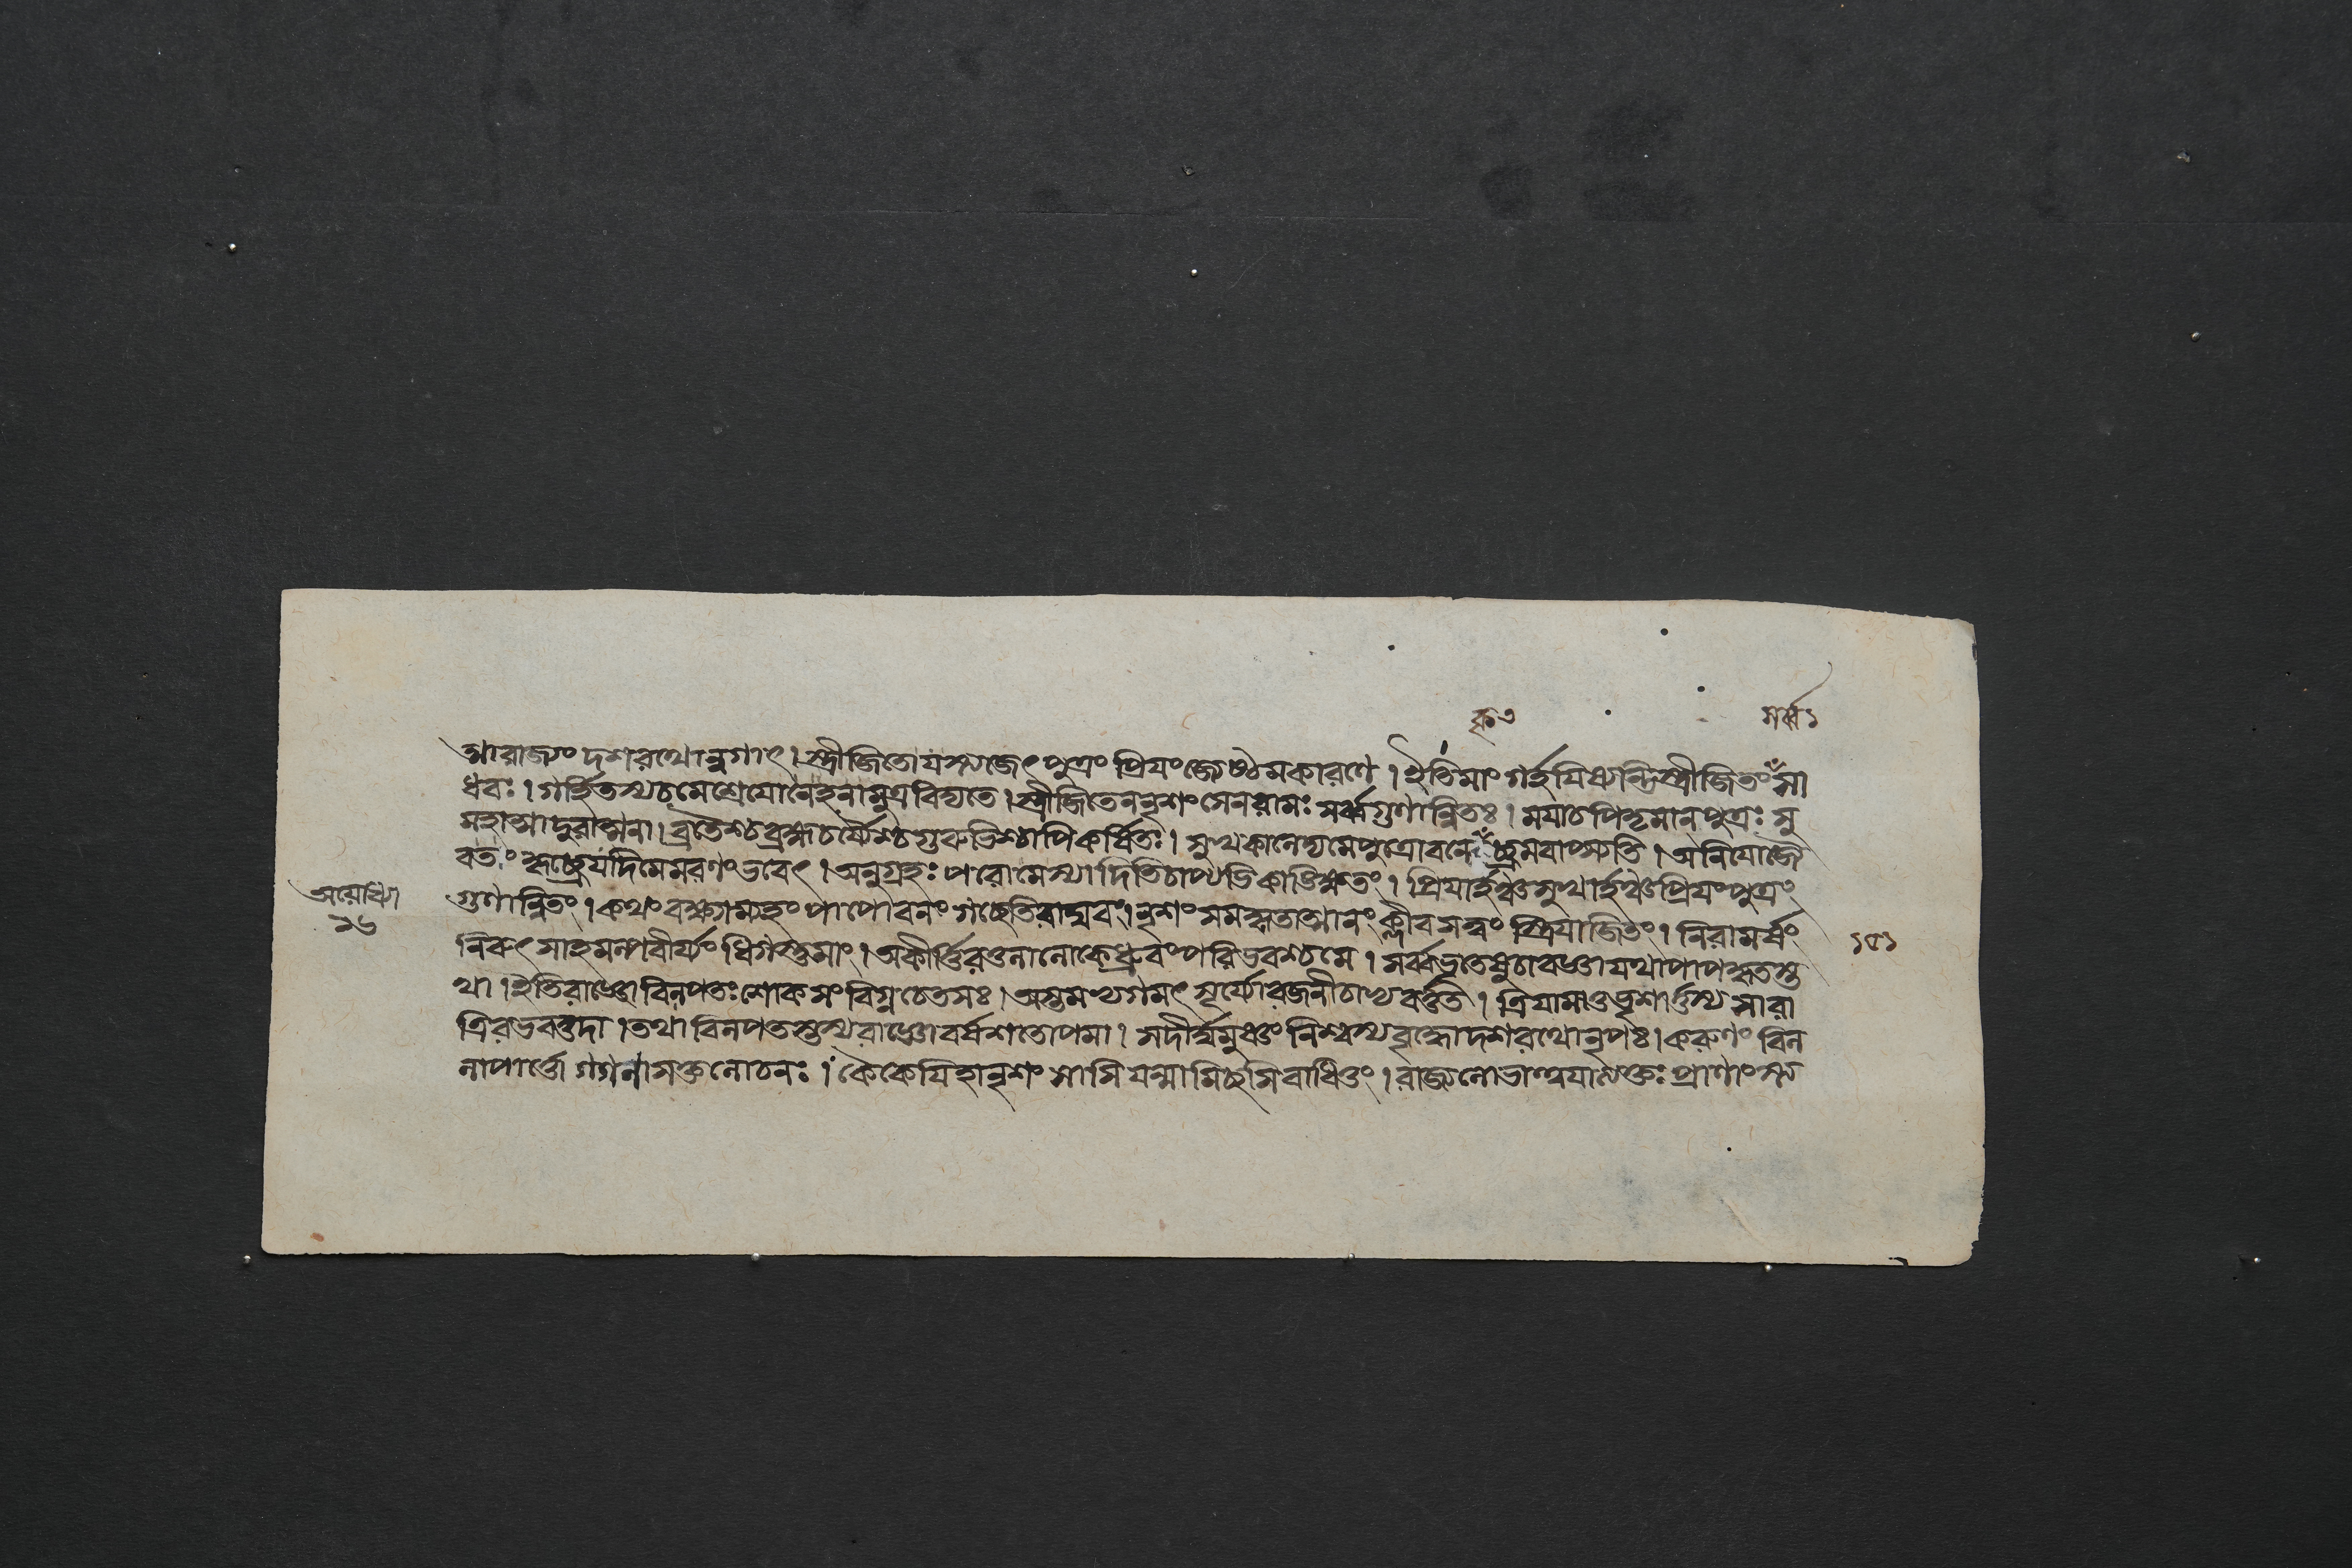 কৃত সর্ব্ব১
আরাজ্যং দশরথোনুগাৎ। স্ত্রীজিতো যস্ত্যজেৎ পুত্রং প্রিযং জ্যেষ্ঠমকারণে। ইতি মাং গর্হযিষ্যন্তি স্ত্রীজিতং সা
ধবঃ। গর্হিতস্য চ মে শ্রেযো নৈহ নামুত্র বিদ্যতে। স্ত্রীজিতেন নৃশংসেন রামঃ সর্ব্বগুণান্বিতঃ। মযা চ পিতৃমান পুত্রঃ সু
মহাত্মা দুরাত্মনা। ব্রতৈশ্চ ব্রহ্মচর্য্যৈশ্চ গুরুভিশ্চাপি কর্ষিতঃ। সুখকালেদ্য মে পুত্রো বনে কৃচ্ছ্রমবাপ্স্যতি। অনিযোজ্যৈ
বতং কৃচ্ছ্রে যদি মে মরণং ভবেৎ। অনুগ্রহঃ পরো মে স্যাদিতি চাপ্যভিকাঙ্ক্ষিতং। প্রিযার্হঞ্চ সুখার্হঞ্চ প্রিযং পুত্রং
অযোধ্যা
২৬
গুণান্বিতং। কথং বক্ষ্যাম্যহং পাপো বনং গচ্ছেতি রাঘবং। নৃশংসমকৃতাত্মানং ক্লীবসত্বং স্ত্রিযা জিতং। নিরামর্ষং
নিরুৎসাহমল্পবীর্য্যং ধিগস্তু মাং। অকীর্ত্তিরতুলা লোকে ধ্রুবং পরিভবশ্চ মে। সর্ব্বভূতেষু চাবজ্ঞা যথা পাপকৃতস্ত
১৫১
থা। ইতি রাজ্ঞো বিলপতঃ শোকসংবিগ্নচেতসঃ। অস্তমভ্যগমৎ সূর্য্যো রজনী চাভ্যবর্ত্তত। ত্রিযামা তু ভৃশার্ত্তস্য সা রা
ত্রিরভবত্তদা। তথা বিলপতস্তস্য রাজ্ঞো বর্ষশতোপমা। স দীর্ঘমুষ্ণং নিশ্বস্য বৃদ্ধো দশরথো নৃপঃ। করুণং বিল
লাপার্ত্তো গগনাসক্তলোচনঃ। কৈকেযি হা নৃশংসাসি যন্মামিচ্ছসি বাধিতুং। রাজ্যলোভাত্ত্বযা ত্যক্তঃ প্রাণাংস্ত্য